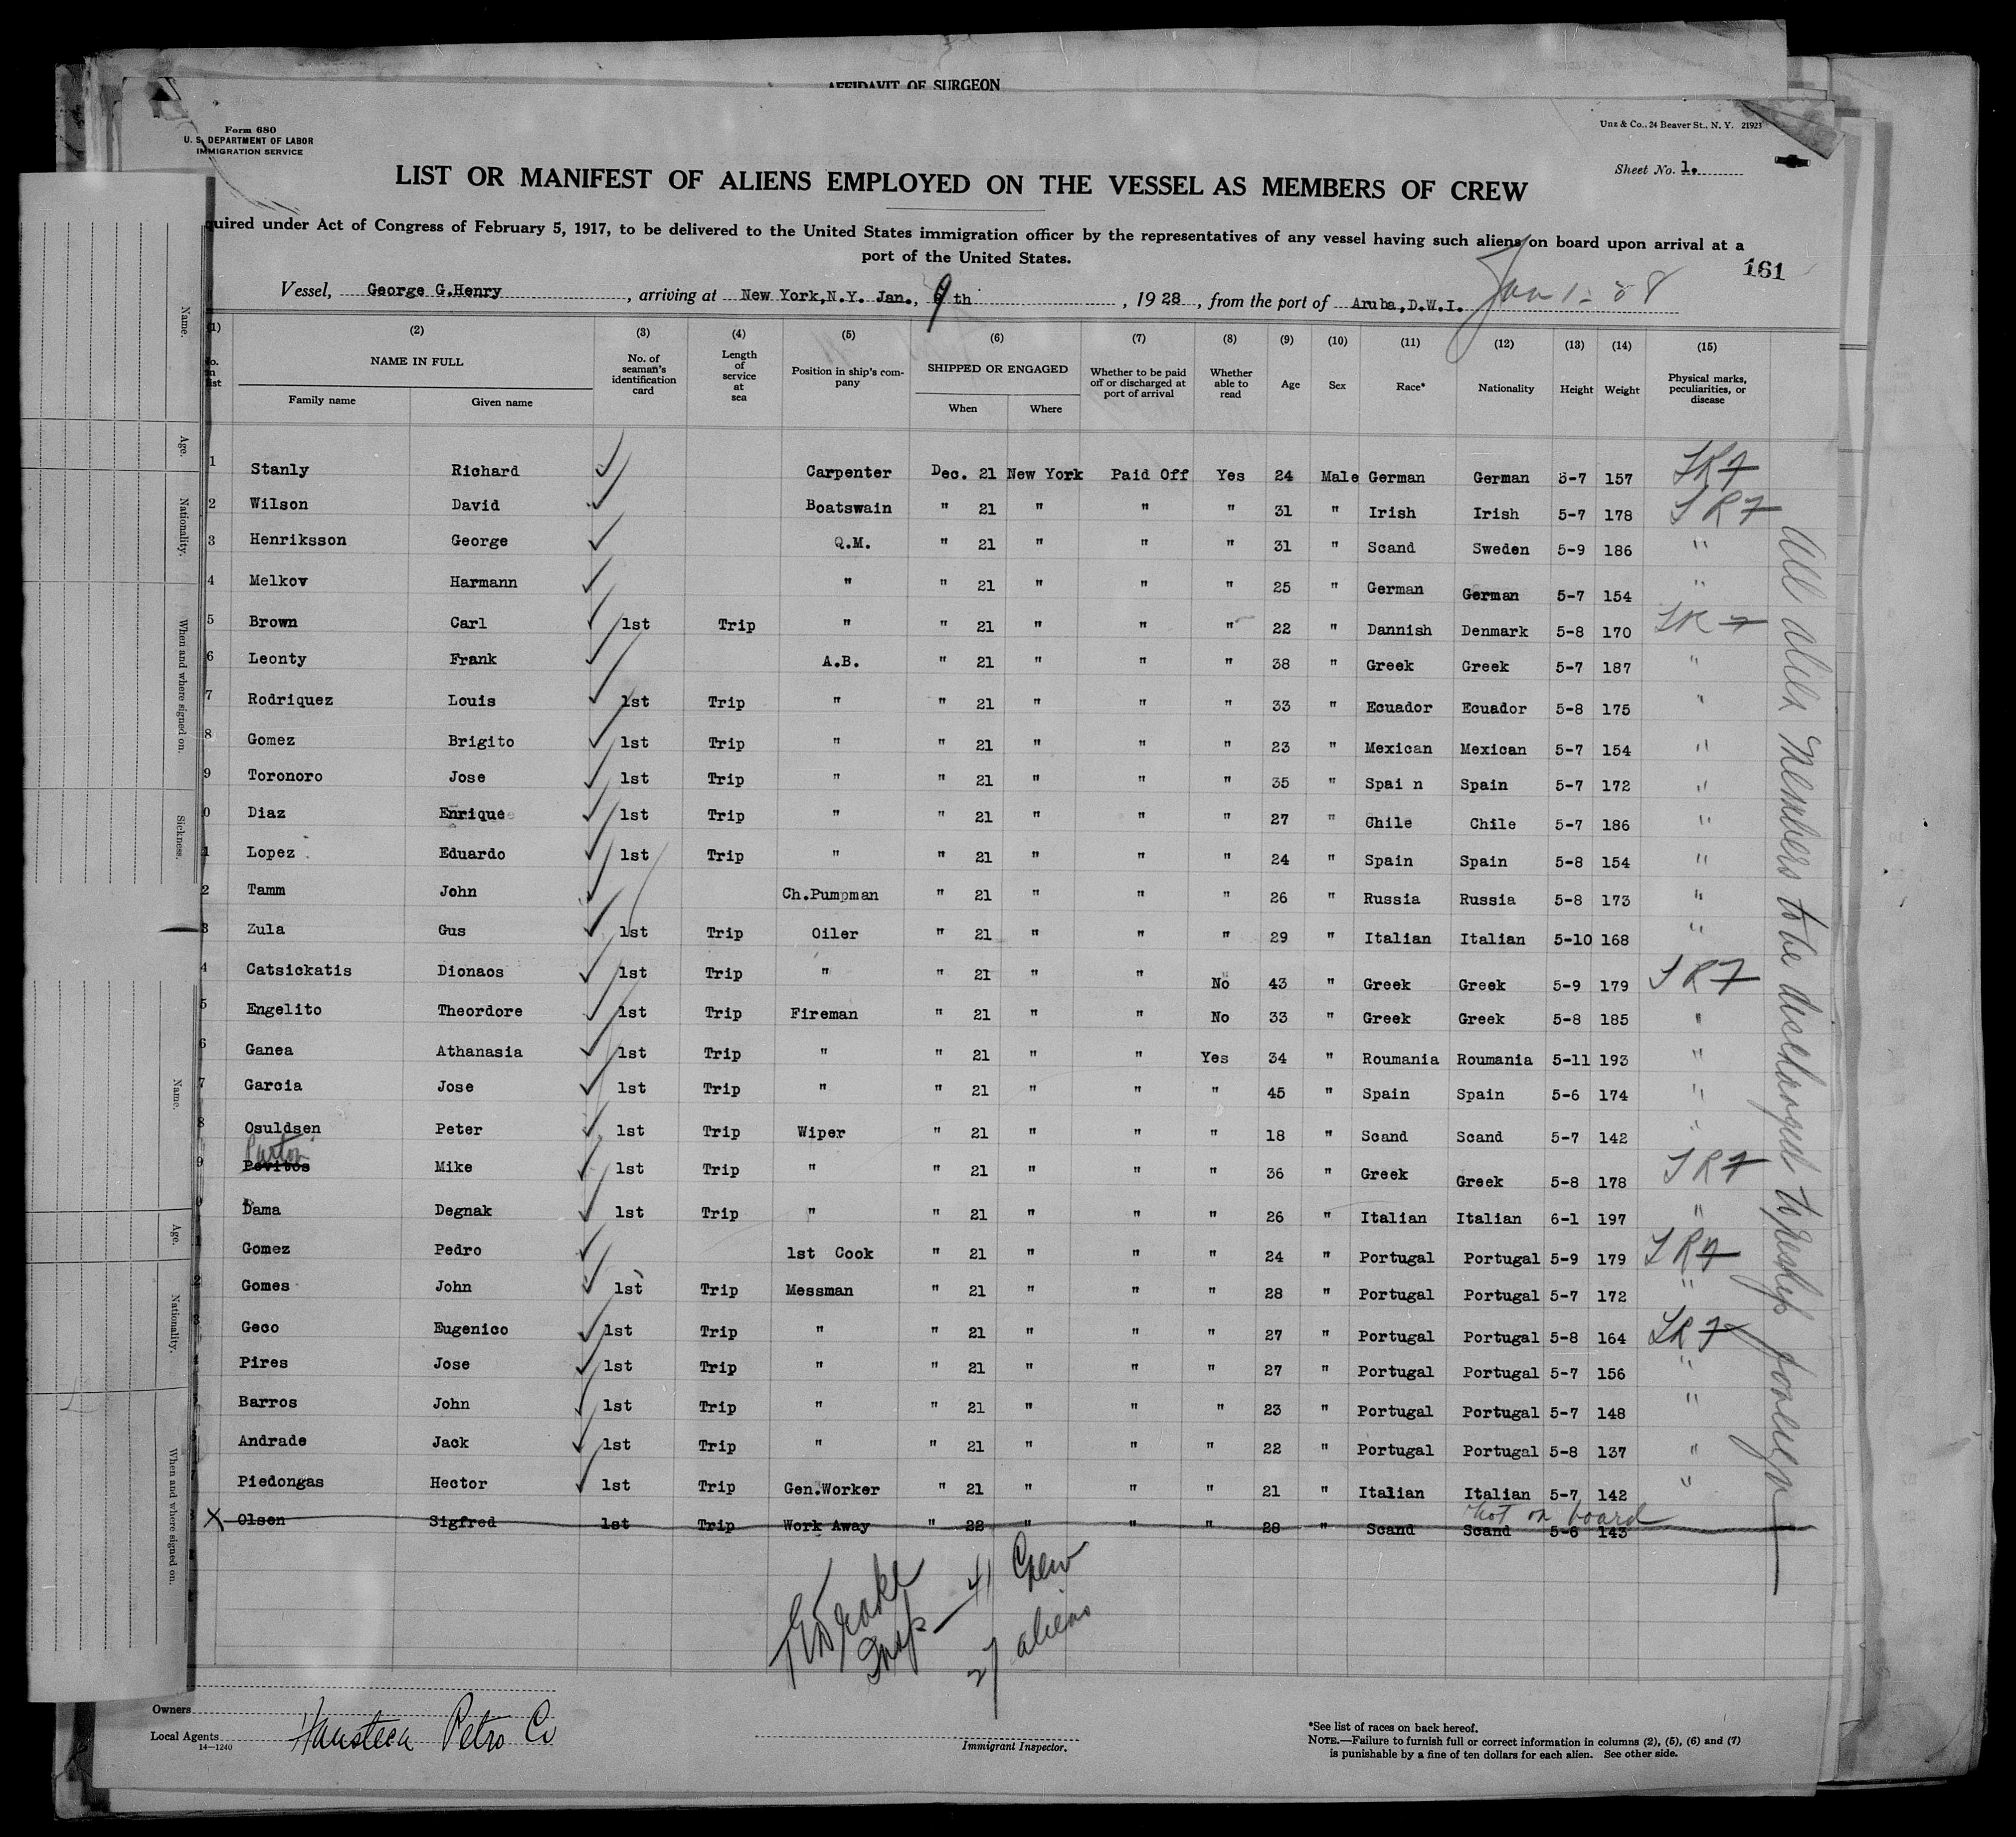 AFFIDAVIT OF SURGEON
Form 680
U. S. DEPARTMENT OF LABOR
IMMIGRATION SERVICE
Unz & Co., 24 Beaver St., N. Y. 21923
Sheet No. 1.
LIST OR MANIFEST OF ALIENS EMPLOYED ON THE VESSEL AS MEMBERS OF CREW
quired under Act of Congress of February 5, 1917, to be delivered to the United States immigration officer by the representatives of any vessel having such aliens on board upon arrival at a
port of the United States.
161
Vessel, George G.Henry, arriving at New York,N.Y. Jan., 9 th, 1928, from the port of Aruba,D.W.I.
(1) (2) (3) (4) (5) (6) (7) (8) (9) (10) (11) (12) (13) (14) (15)
NAME IN FULL
Family name Given name
No. of seaman's identification card
Length of service at sea
Position in ship's company
SHIPPED OR ENGAGED
When Where
Whether to be paid off or discharged at port of arrival
Whether able to read
Age Sex Race* Nationality Height Weight
Physical marks, peculiarities, or disease
1 Stanly Richard Carpenter Dec. 21 New York Paid Off Yes 24 Male German German 5-7 157
2 Wilson David Boatswain " 21 " " " 31 " Irish Irish 5-7 178
3 Henriksson George Q.M. " 21 " " " 31 " Scand Sweden 5-9 186 "
4 Melkov Harmann " " 21 " " " 25 " German German 5-7 154 "
5 Brown Carl 1st Trip " " 21 " " " 22 " Dannish Denmark 5-8 170
6 Leonty Frank A.B. " 21 " " " 38 " Greek Greek 5-7 187 "
7 Rodriquez Louis 1st Trip " " 21 " " " 33 " Ecuador Ecuador 5-8 175 "
8 Gomez Brigito 1st Trip " " 21 " " " 23 " Mexican Mexican 5-7 154 "
9 Toronoro Jose 1st Trip " " 21 " " " 35 " Spai n Spain 5-7 172 "
0 Diaz Enrique 1st Trip " " 21 " " " 27 " Chile Chile 5-7 186 "
1 Lopez Eduardo 1st Trip " " 21 " " " 24 " Spain Spain 5-8 154 "
2 Tamm John Ch.Pumpman " 21 " " " 26 " Russia Russia 5-8 173 "
3 Zula Gus 1st Trip Oiler " 21 " " " 29 " Italian Italian 5-10 168 "
4 Catsickatis Dionaos 1st Trip " " 21 " " No 43 " Greek Greek 5-9 179
5 Engelito Theordore 1st Trip Fireman " 21 " " No 33 " Greek Greek 5-8 185 "
6 Ganea Athanasia 1st Trip " " 21 " " Yes 34 " Roumania Roumania 5-11 193 "
7 Garcia Jose 1st Trip " " 21 " " " 45 " Spain Spain 5-6 174 "
8 Osuldsen Peter 1st Trip Wiper " 21 " " " 18 " Scand Scand 5-7 142 "
9 Pevitos Mike 1st Trip " " 21 " " " 36 " Greek Greek 5-8 178
0 Dama Degnak 1st Trip " " 21 " " " 26 " Italian Italian 6-1 197 "
1 Gomez Pedro 1st Cook " 21 " " " 24 " Portugal Portugal 5-9 179
2 Gomes John 1st Trip Messman " 21 " " " 28 " Portugal Portugal 5-7 172 "
3 Geco Eugenico 1st Trip " " 21 " " " 27 " Portugal Portugal 5-8 164
Pires Jose 1st Trip " " 21 " " " 27 " Portugal Portugal 5-7 156 "
Barros John 1st Trip " " 21 " " " 23 " Portugal Portugal 5-7 148 "
Andrade Jack 1st Trip " " 21 " " " 22 " Portugal Portugal 5-8 137 "
Piedongas Hector 1st Trip Gen.Worker " 21 " " " 21 " Italian Italian 5-7 142 "
not on board
X Olsen Sigfred 1st Trip Work Away " 22 " " " 28 " Scand Scand 5-6 143
All alien members to be discharged to reship foreign
Insp
41 Crew
27 aliens
Owners
Local Agents Huasteca Petro Co
14—1240
Immigrant Inspector.
*See list of races on back hereof.
NOTE.—Failure to furnish full or correct information in columns (2), (5), (6) and (7)
is punishable by a fine of ten dollars for each alien. See other side.
Name.
Age.
Nationality.
When and where signed on.
Sickness.
Name.
Age.
Nationality.
When and where signed on.